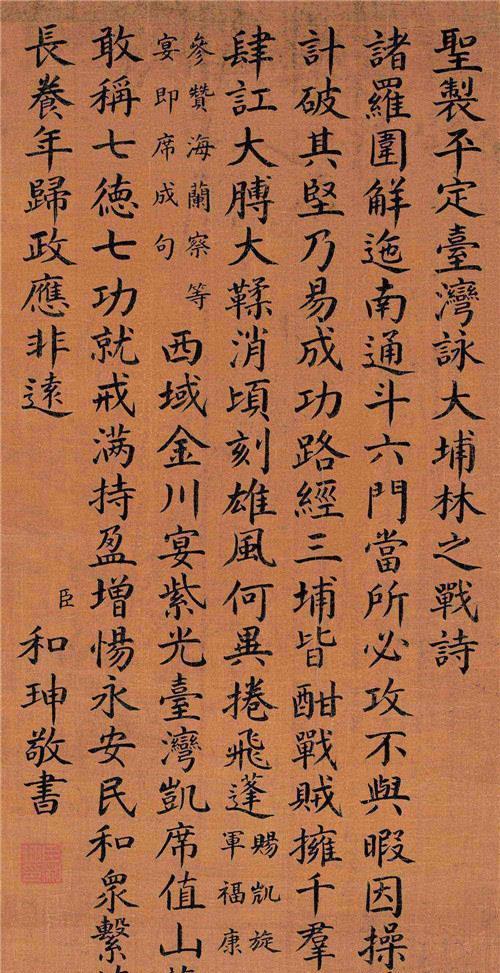 聖製平定臺灣詠大埔林之戰詩
諸羅圍觧迤南通斗六門當所必攻不與暇因操
計破其堅乃易成功路經三埔皆酣戰賊擁千羣
肆訌大膊大鞣消頃刻雄風何異捲飛蓬
賜凱旋
軍福康
參贊海蘭察等
宴即席成句
西域金川宴紫光臺灣凱席值山
敢稱七德七功就戒满持盈增惕永安民和衆繫
長養年歸政應非遠
臣和珅敬書